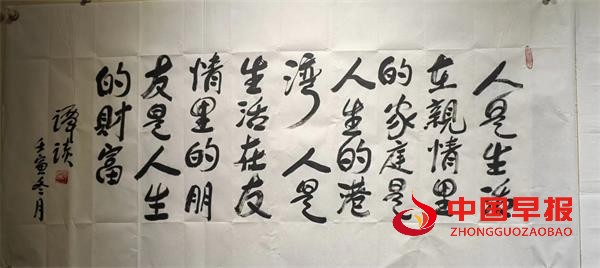 人是生活
在親情里
的家庭是
人生的港
湾 人是
生活在友
情里的朋
友是人生
的財富
谭谈
壬寅冬月
中国早报
ZHONGGUOZAOBAO